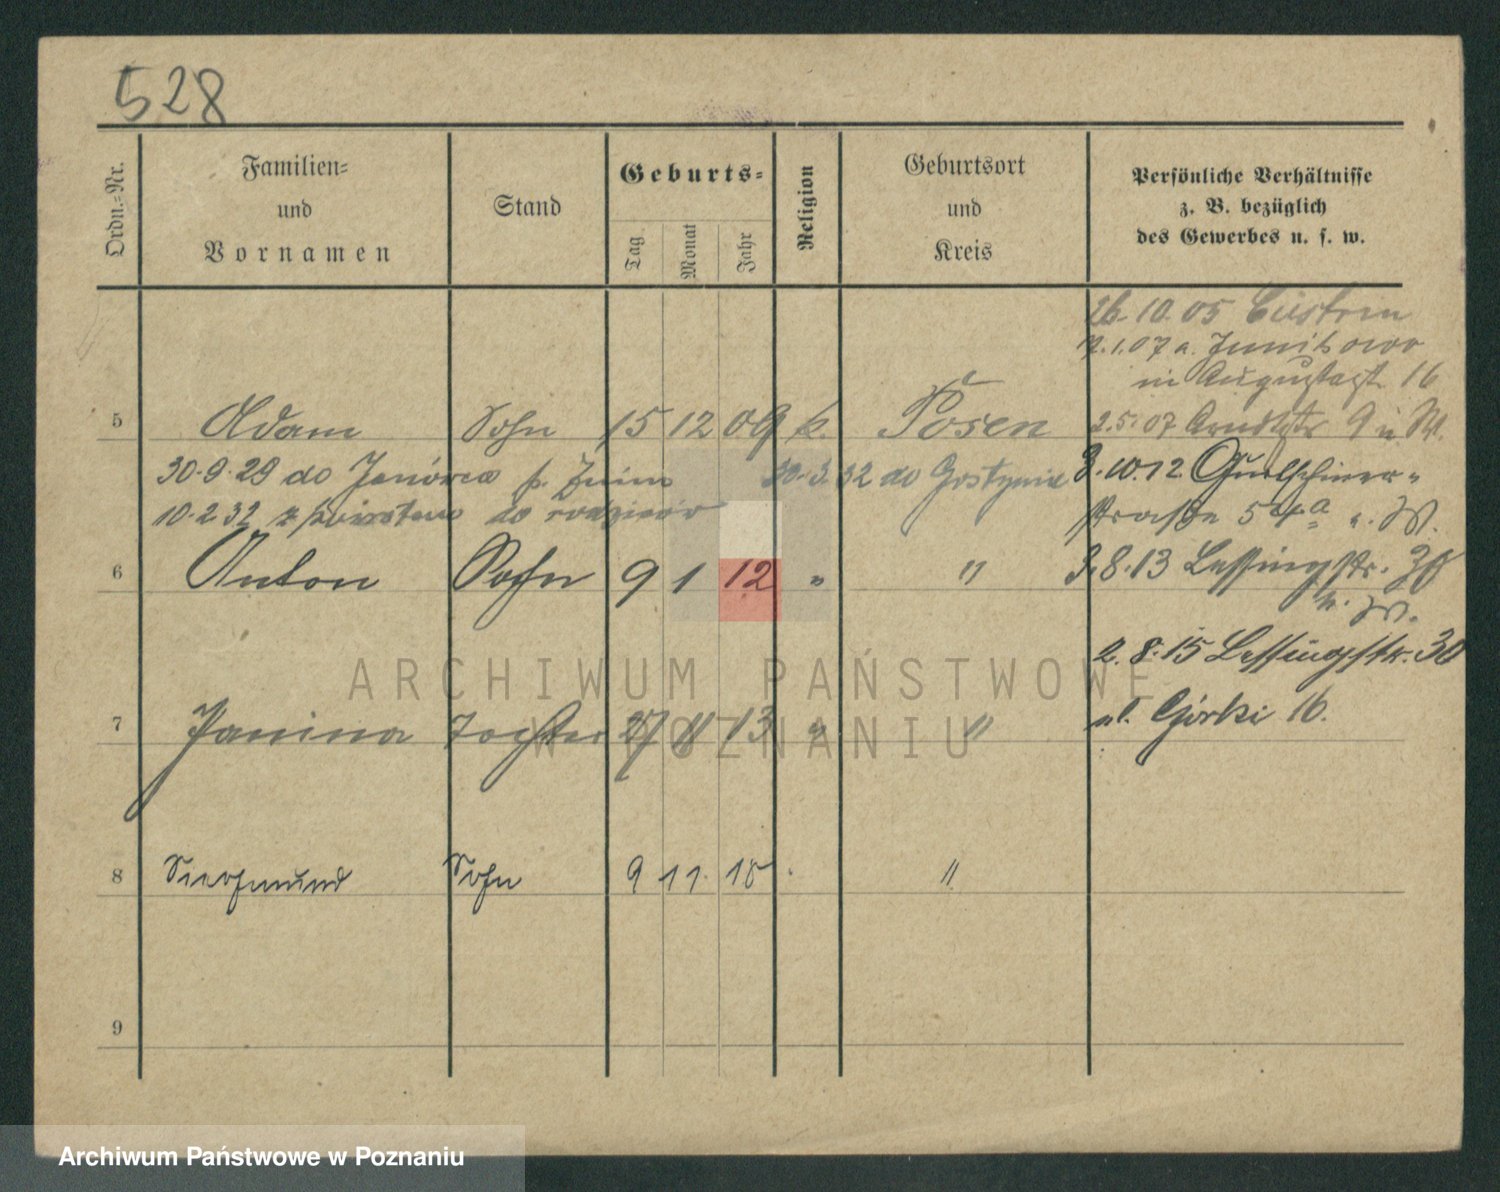 528
Ordn.-Nr.
Familien-
und
Vornamen
Stand
Geburts-
Tag
Monat
Jahr
Religion
Geburtsort
und
Kreis
Persönliche Verhältnisse
z. B. bezüglich
des Gewerbes u. s. w.
26.10.05 Cüstrin
07 a. Junikowo
in Augustastr. 16
5 Adam Sohn 15 12 09 k. Posen
2.5.07 Arndtstr 9 u. W.
30.9.29 do Janówca p. Żnin 30.3.32 do Gostynia
8.10.12 Gurtschiner-
10.2.32 z powrotem do rodziców
straße 5 u. W.
6 Anton Sohn 9 1 12 " "
3.8.13 Lessingstr. 30
u. W.
2.8.15 Lessingstr. 30
7 Janina Tochter 27 11 13 " "
ul. Górki 16.
8 Siegmund Sohn 9 11 18 "
9
ARCHIWUM PAŃSTWOWE
W POZNANIU
Archiwum Państwowe w Poznaniu